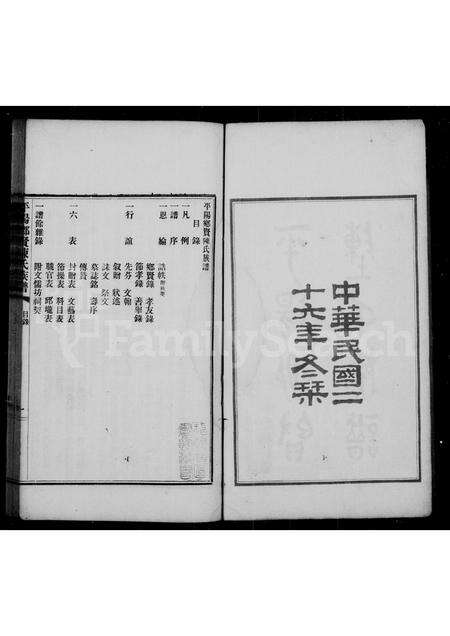 中華民國二
十六年冬栞
平陽鄉賢陳氏族譜
目錄
一凡例
一譜序
一恩綸
誥軼
一行誼
鄉賢錄 孝友錄
節孝錄 善舉錄
先芬 文翰
叙財 狀述
誄文 祭文
墓誌銘 壽序
傳貲
一六表
封贈表 文藝表
節操表 科目表
職官表 邱壠表
一譜餘雜錄
附文儒坊祠契
目錄
FamilySearch